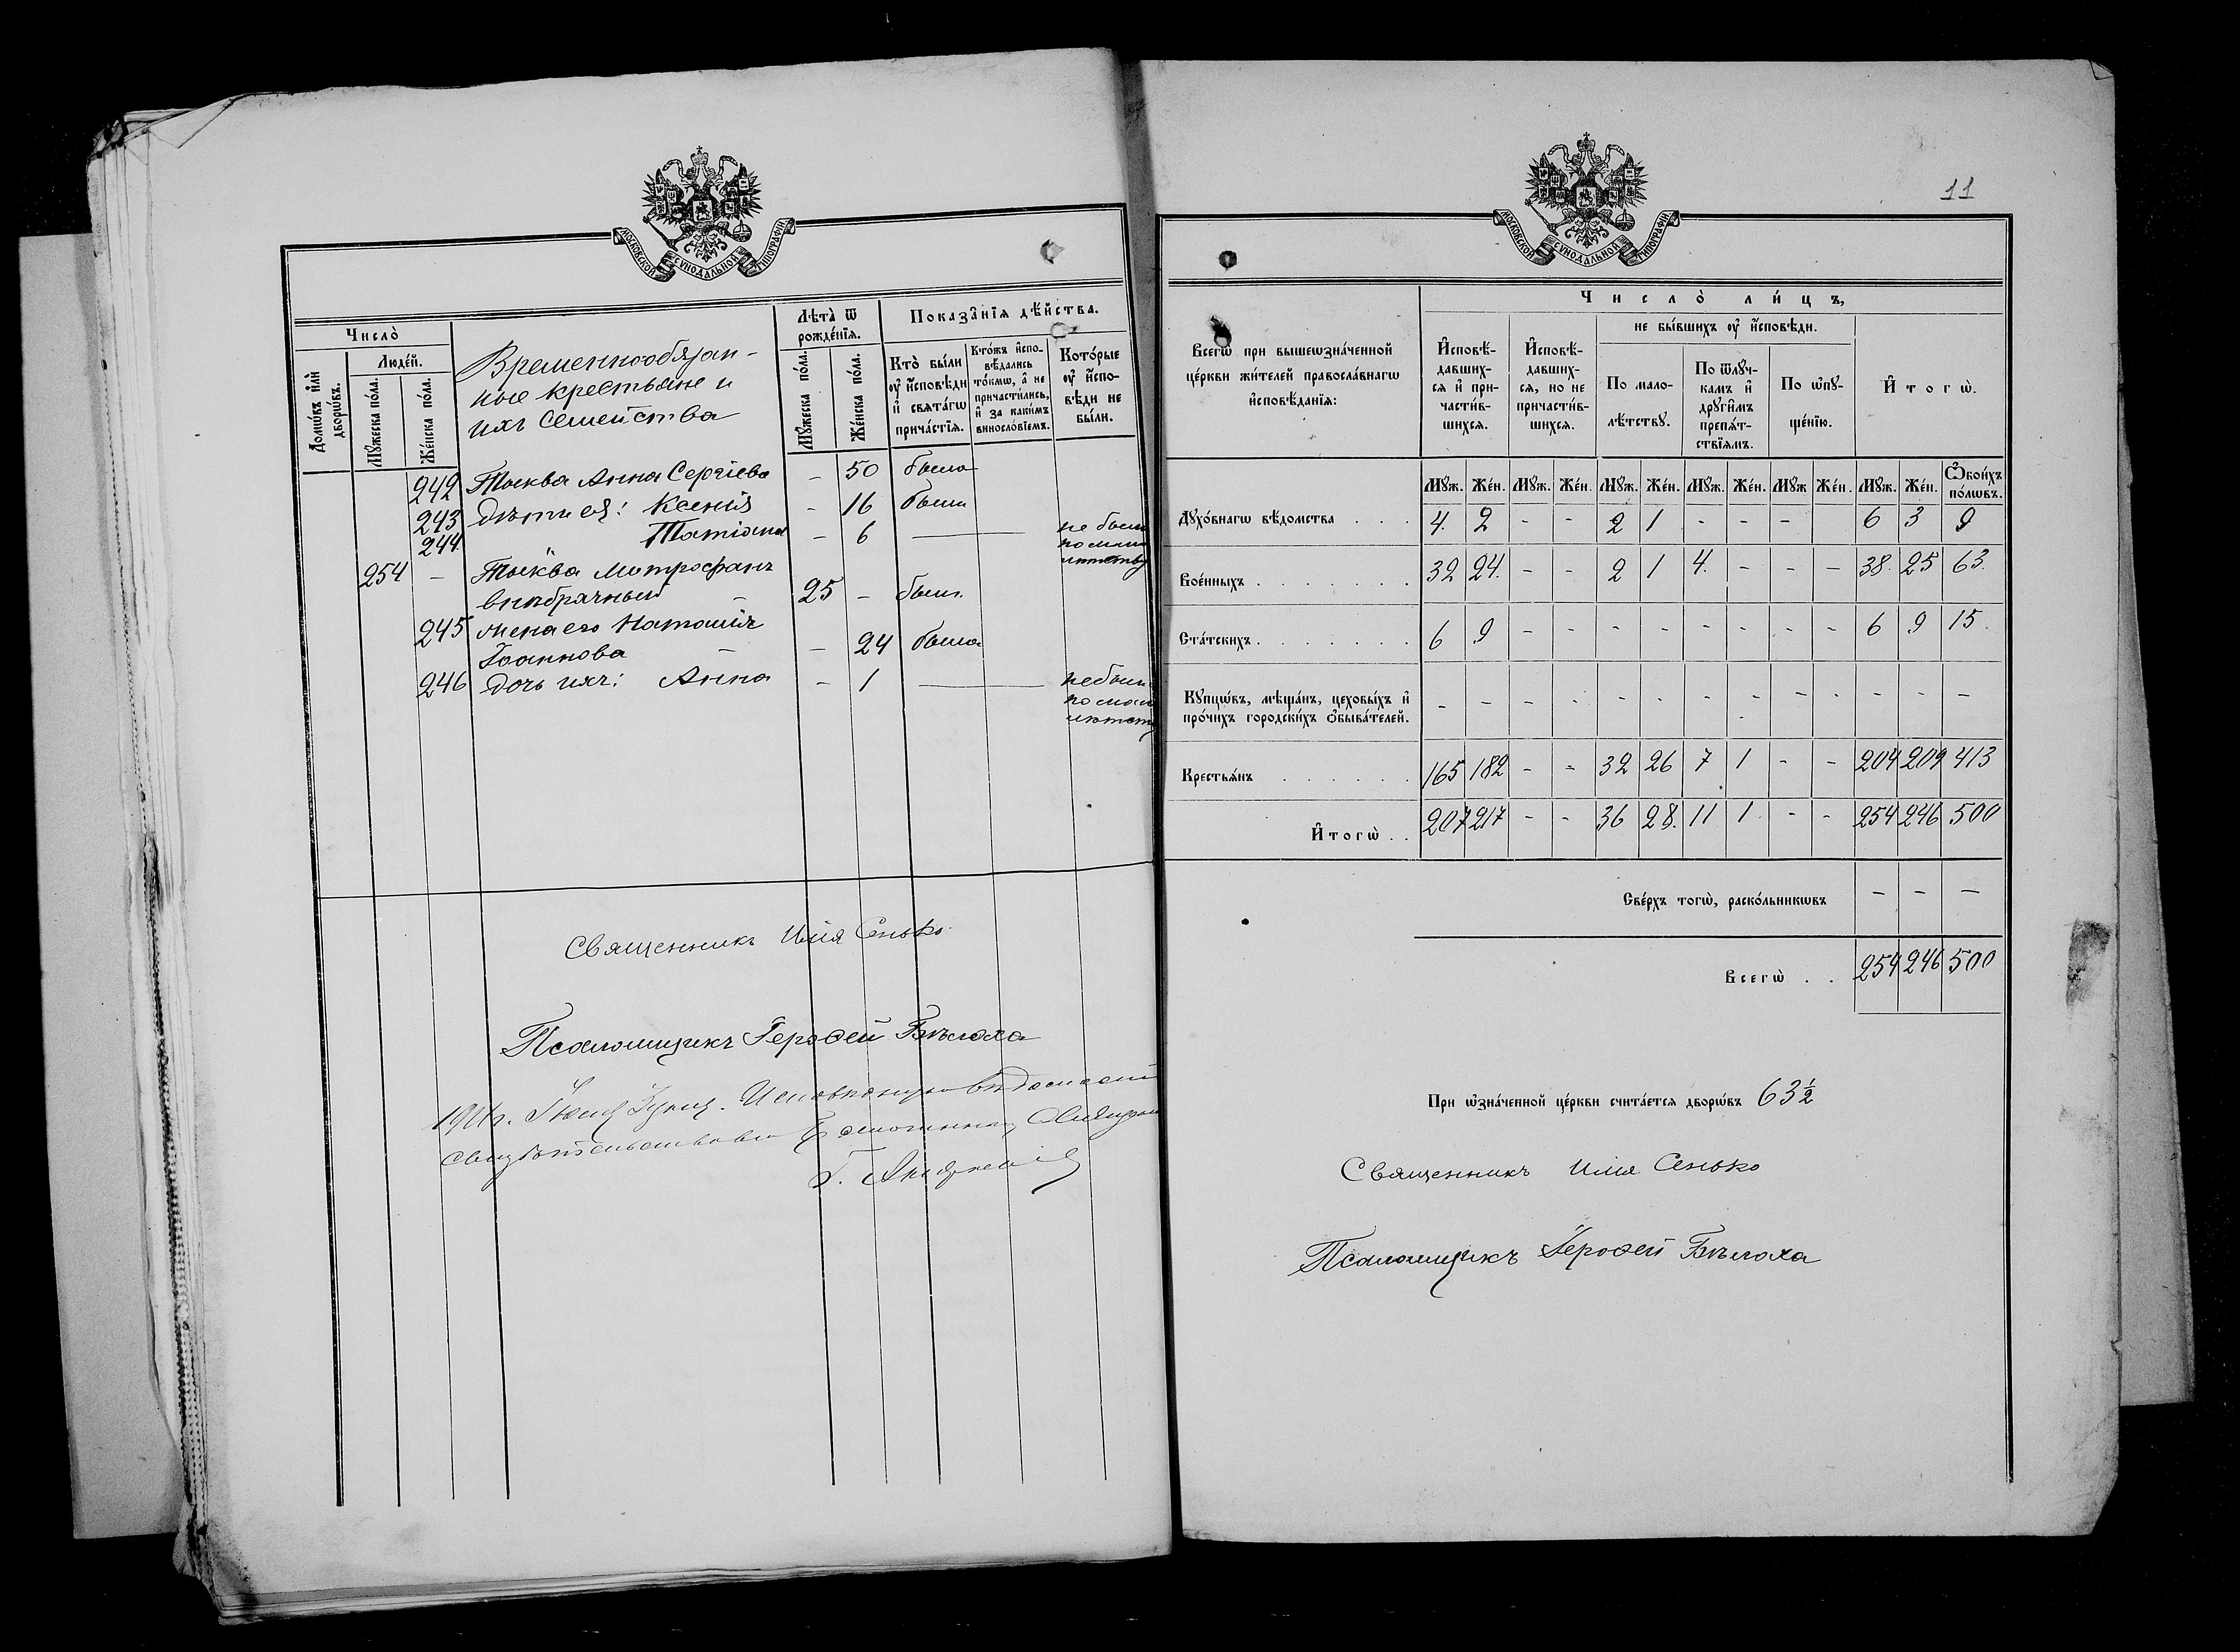 МОСКОВСКОЙ СУНОДАЛЬНОЙ ТИПОГРАФІИ
Число̀
Домѡ́въ и҆лѝ дворѡ́въ.
Люде́й.
Мꙋ́жеска по́ла.
Же́нска по́ла.
Временнообязан-
ные крестьяне и
ихъ семейства
Лѣта̀ ѿ рожде́нїѧ.
Мꙋ́жеска по́ла.
Же́нска по́ла.
Показа̑нїѧ дѣ́йства.
Кто̀ бы́ли ᲂу҆ и҆сповѣ́ди и҆ свѧта́гѡ прича́стїѧ.
Кто́жъ и҆спо-вѣ́дались то́кмѡ, а҆ не причасти́лись, и҆ за каки́мъ винословїемъ.
Кото́рые ᲂу҆ и҆спо-вѣ́ди не бы́ли.
242 Тыква Анна Сергіева - 50 была
243 Дѣти ея: Ксенія - 16 была
244 Татіана - 6 — не была
по мало
лѣтству
254 - Тыква Митрофанъ
внѣбрачный - 25 - былъ
245 Жена его Наталія
Іоаннова - 24 была
246 Дочь ихъ: Анна - 1 — не была
по мало
лѣтству
Священникъ Илія Сенько
Псаломщикъ Іерофей Бѣлоха
МОСКОВСКОЙ СУНОДАЛЬНОЙ ТИПОГРАФІИ
11
Всегѡ̀ при вышеѡзна́ченной
це́ркви жи́телей правосла́внагѡ
и҆сповѣ́данїѧ:
Число̀ ли́цъ,
И҆сповѣ́-давших-сѧ и҆ при-части́в-шихсѧ.
И҆сповѣ́-давших-сѧ, но не причасти́в-шихсѧ.
не бы́вшихъ ᲂу҆ и҆сповѣ́ди.
По мало-лѣ́тствꙋ.
По ѿлꙋ́ч-камъ и҆ дрꙋги̑мъ препѧ́т-ствїѧмъ.
По ѡ҆пꙋ-ще́нїю.
И҆тогѡ̀.
Мꙋж. Же́н. Мꙋж. Же́н. Мꙋж. Же́н. Мꙋж. Же́н. Мꙋж Же́н. Мꙋж. Же́н. Ѻ҆бои́хъ по́лѡвъ.
Дꙋхо́внагѡ вѣ́домства . . . 4. 2 - - 2 1 - - - 6 3 9
Вое́нныхъ . . . . . . . 32 24. - - 2 1 4. - - - 38. 25 63.
Ста́тскихъ . . . . . . . 6 9 - - - - - - - - 6 9 15.
Кꙋпцѡ́въ, мѣща́нъ, цеховы́хъ и҆
про́чихъ городски́хъ ѻ҆быва́телей. - - - - - - - - - - - - -
Крестьѧ́нъ . . . . . . 165 182 - - 32 26 7 1 - - 204 209 413
И҆тогѡ̀ . . 207 217 - - 36 28. 11 1 - - 254 246 500
Све́рхъ тогѡ̀, раско́льникѡвъ - - -
Всегѡ̀ . . 254 246 500
При ѡ҆зна́ченной це́ркви счита́етсѧ дворѡ́въ 63½
Священникъ Илія Сенько
Псаломщикъ Іерофей Бѣлоха